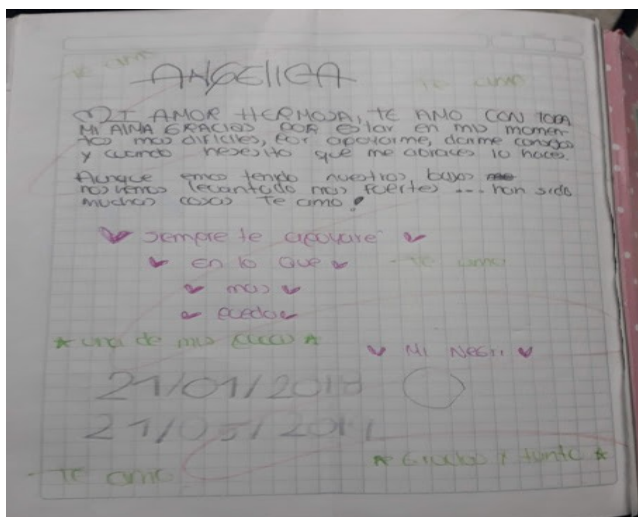 te amo
ANGELICA
te amo
MI AMOR HERMOSA, TE AMO CON TODA
MI ALMA GRACIAS POR estar en mis momen-
tos mas dificiles, por apoyarme, darme consejos
y cuando nesesito que me abraces lo haces.
Aunque emos tenido nuestros, bajos
nos hemos levantado mas fuertes ... han sido
muchas cosas Te amo!
siempre te apoyare
en lo que - te amo
mas
pueda
una de mis
Mi Negri
21/01/2018
21/05/
Gracias x tanto
- Te amo